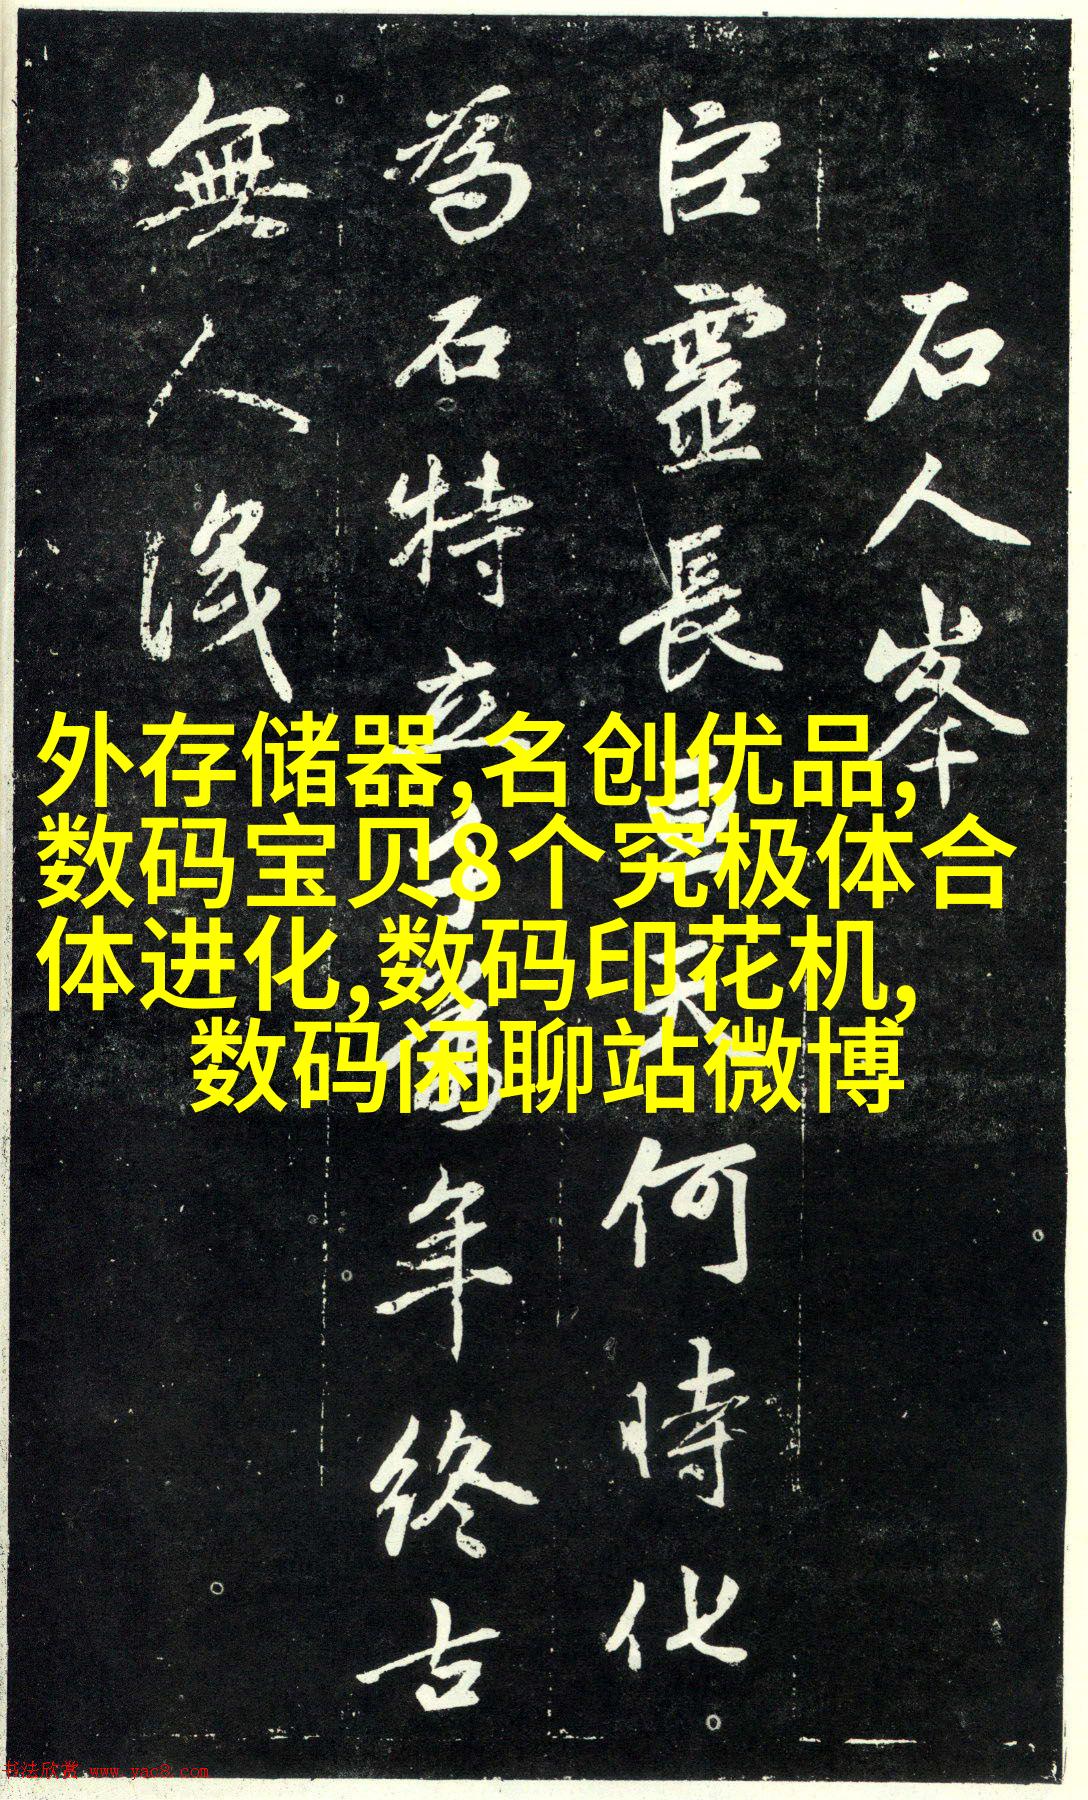 石人峯
巨靈長亘天何時化
為石特立千萬年終古
無人識
外存储器,名创优品,
数码宝贝8个究极体合
体进化,数码印花机,
数码闲聊站微博
书法欣赏 www.yac8.com